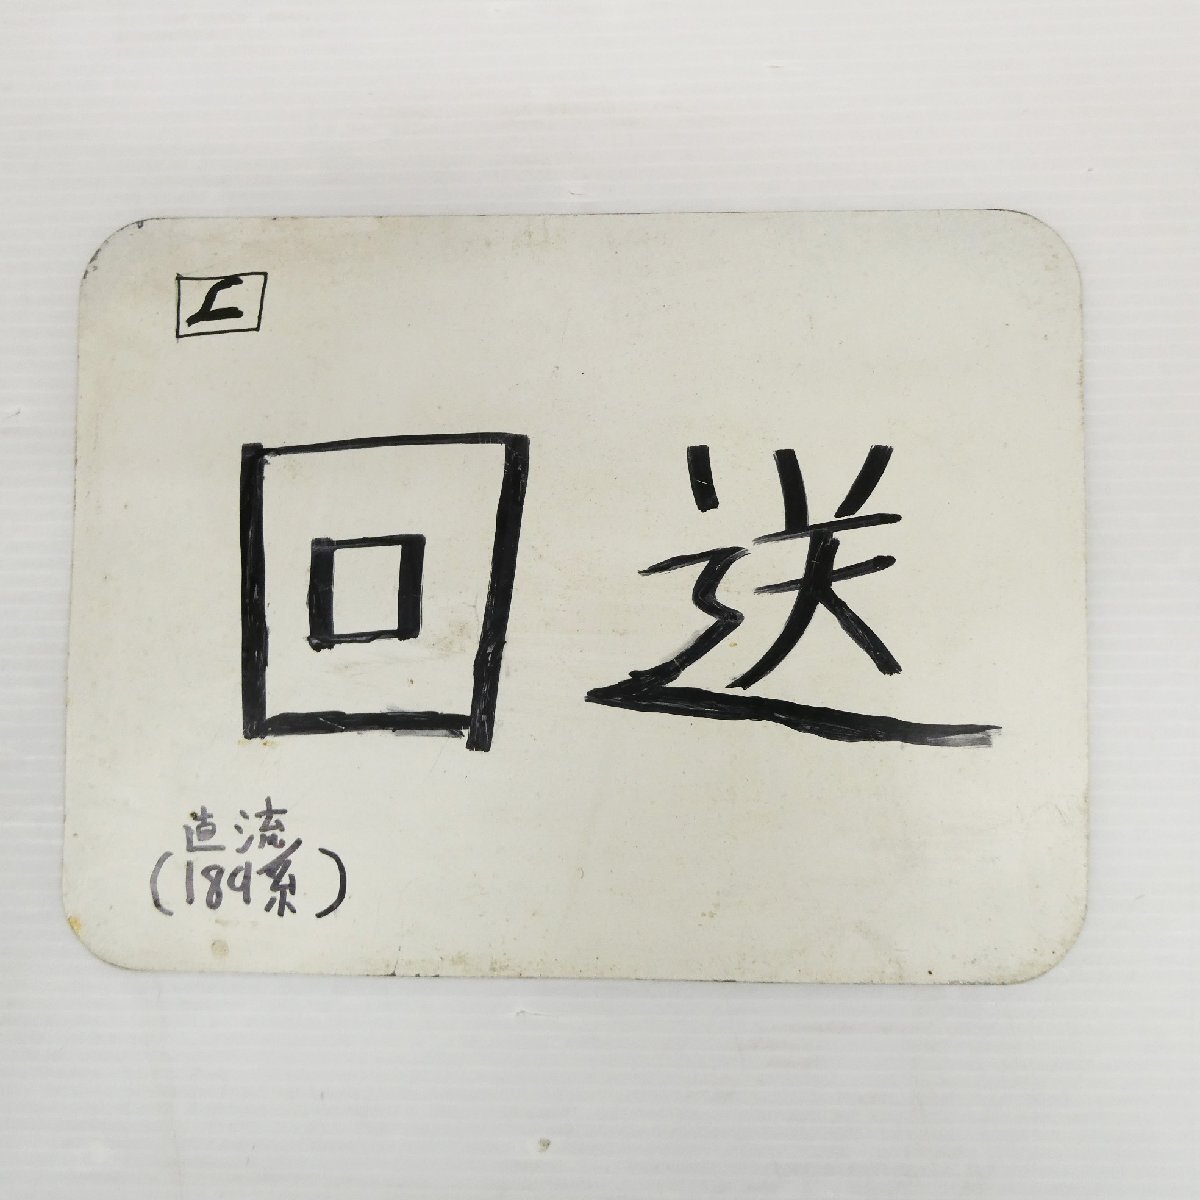 L
回送
直流
(189系)